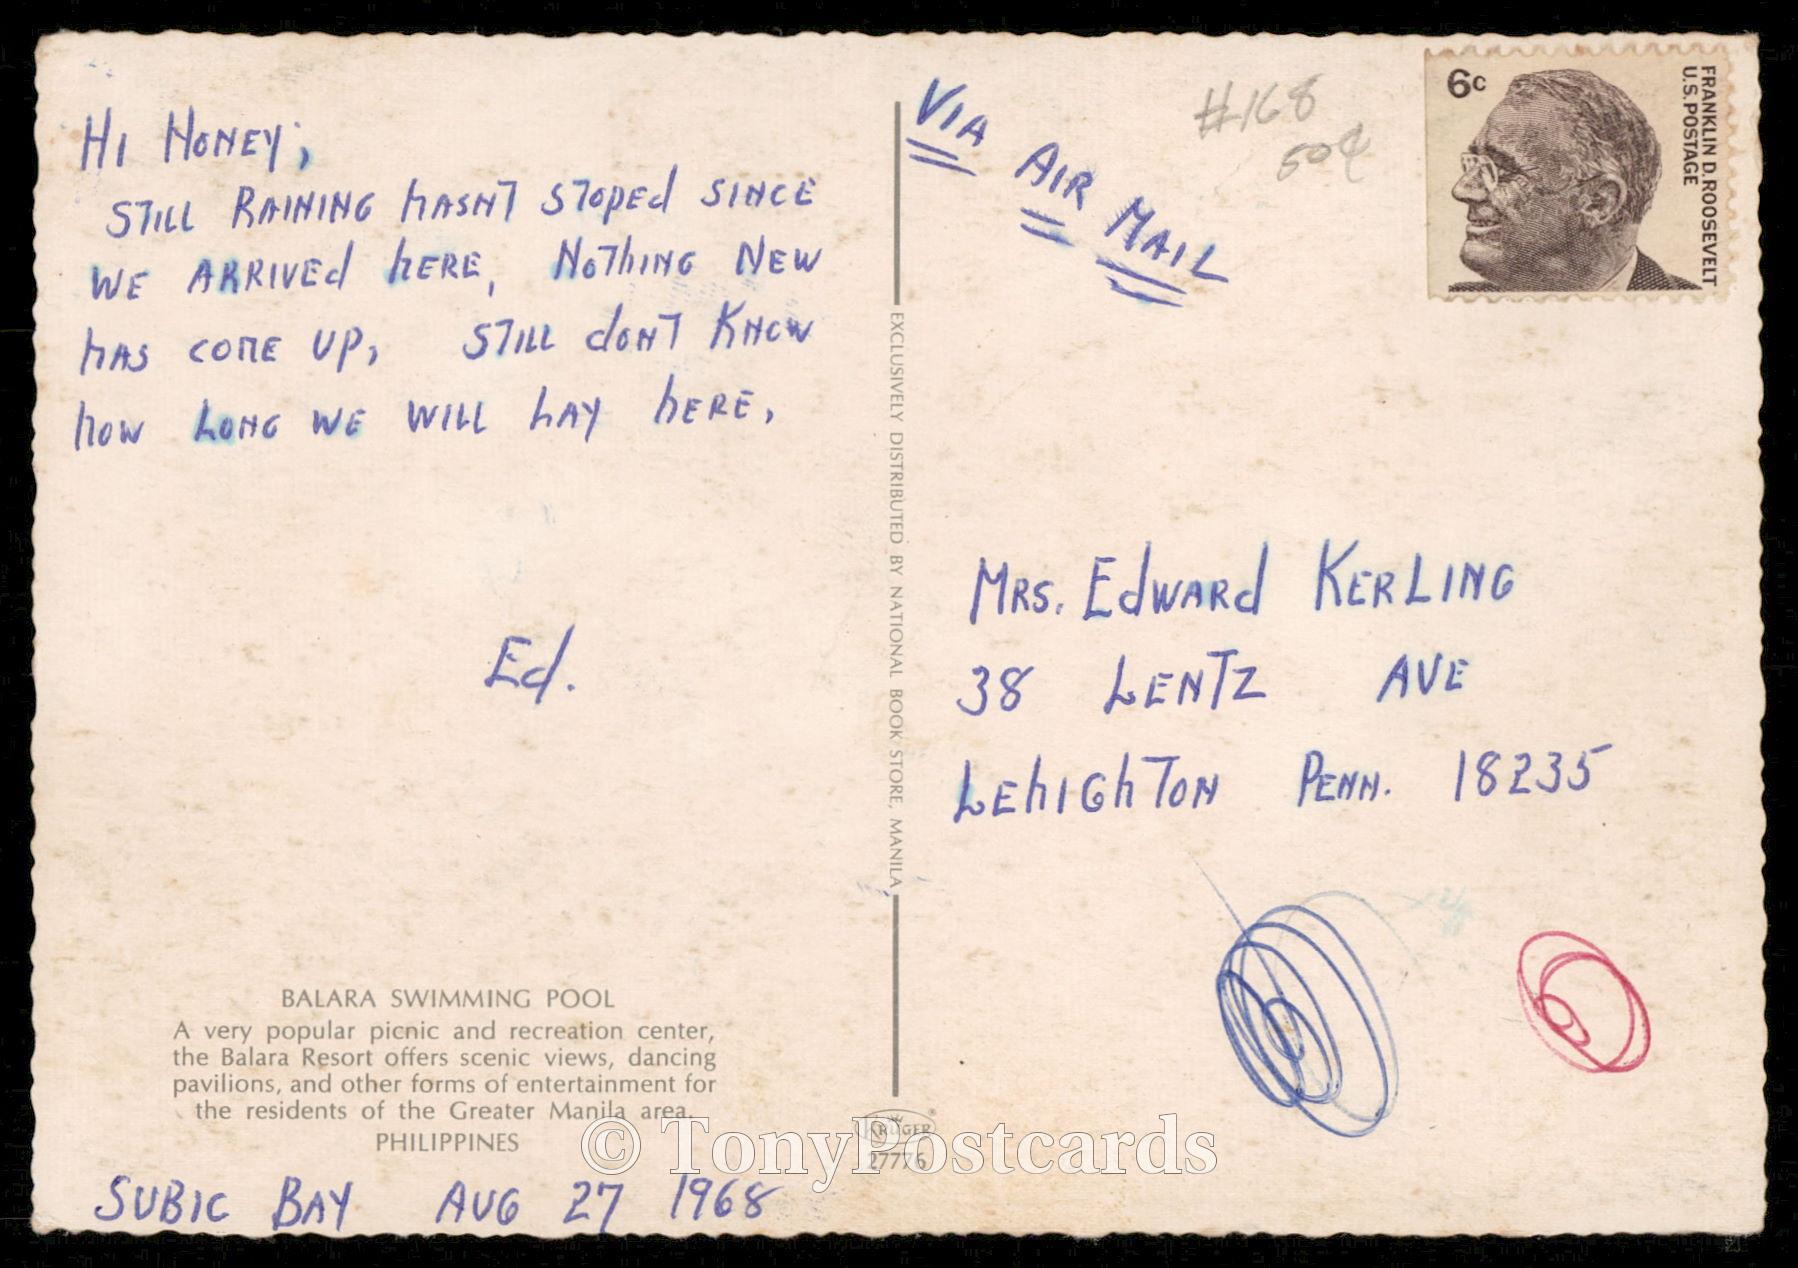 Hi Honey,
Still Raining hasnt stoped since
we arrived here, Nothing New
has come up, still dont know
how long we will lay here,
Ed.
BALARA SWIMMING POOL
A very popular picnic and recreation center,
the Balara Resort offers scenic views, dancing
pavilions, and other forms of entertainment for
the residents of the Greater Manila area.
PHILIPPINES
Subic Bay Aug 27 1968
EXCLUSIVELY DISTRIBUTED BY NATIONAL BOOK STORE, MANILA
KRÜGER
27776
Via Air Mail
#168
50¢
6c
FRANKLIN D. ROOSEVELT
U.S. POSTAGE
Mrs. Edward Kerling
38 Lentz Ave
Lehighton Penn. 18235
© TonyPostcards